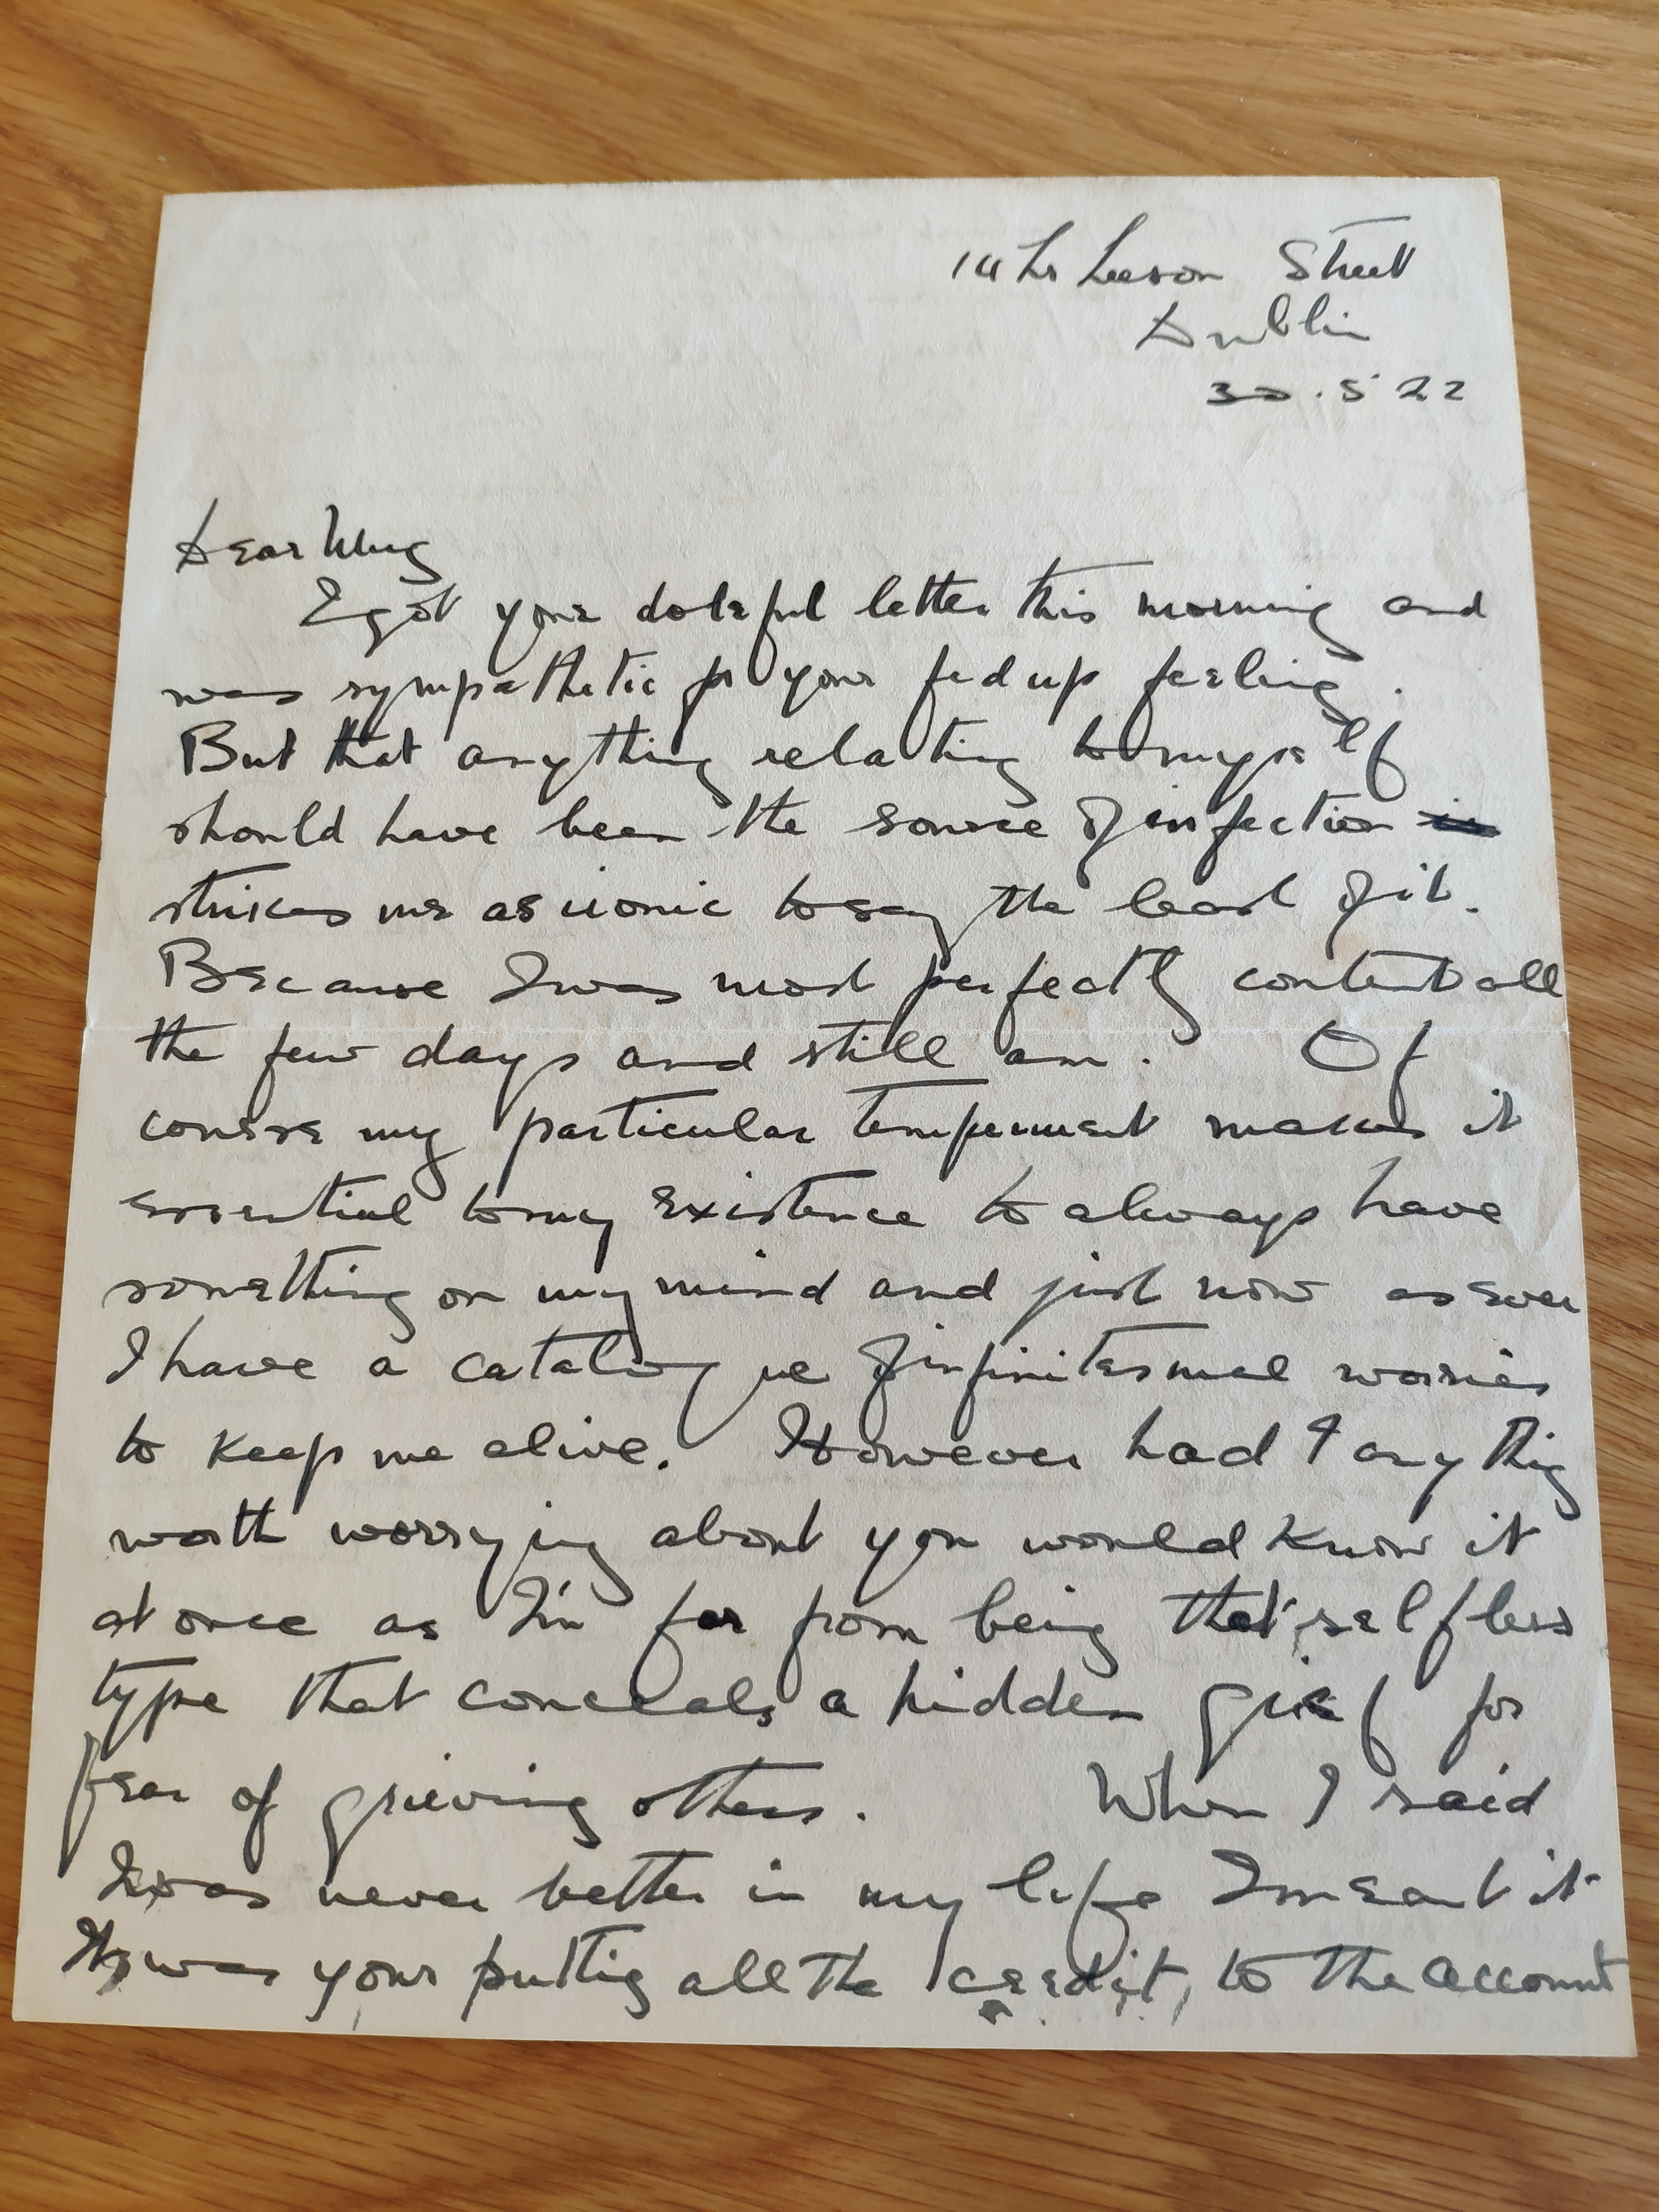 14 Lr Leeson Street
Dublin
30.5.22
Dear
I got your doleful letter this morning and
was sympathetic for your fed up feeling.
But that anything relating to myself
should have been the source of infection
strikes me as ironic to say the least of it.
Because I was most perfectly content all
the few days and still am. Of
course my particular temperment makes it
essential to my existence to always have
something on my mind and just now as ever
I have a catalogue of infinitesmal worries
to keep me alive. However had I anything
worth worrying about you would know it
at once as I'm far from being that selfless
type that conceals a hidden grief for
fear of grieving others. When I said
I was never better in my life I meant it
It was your putting all the credit, to the account